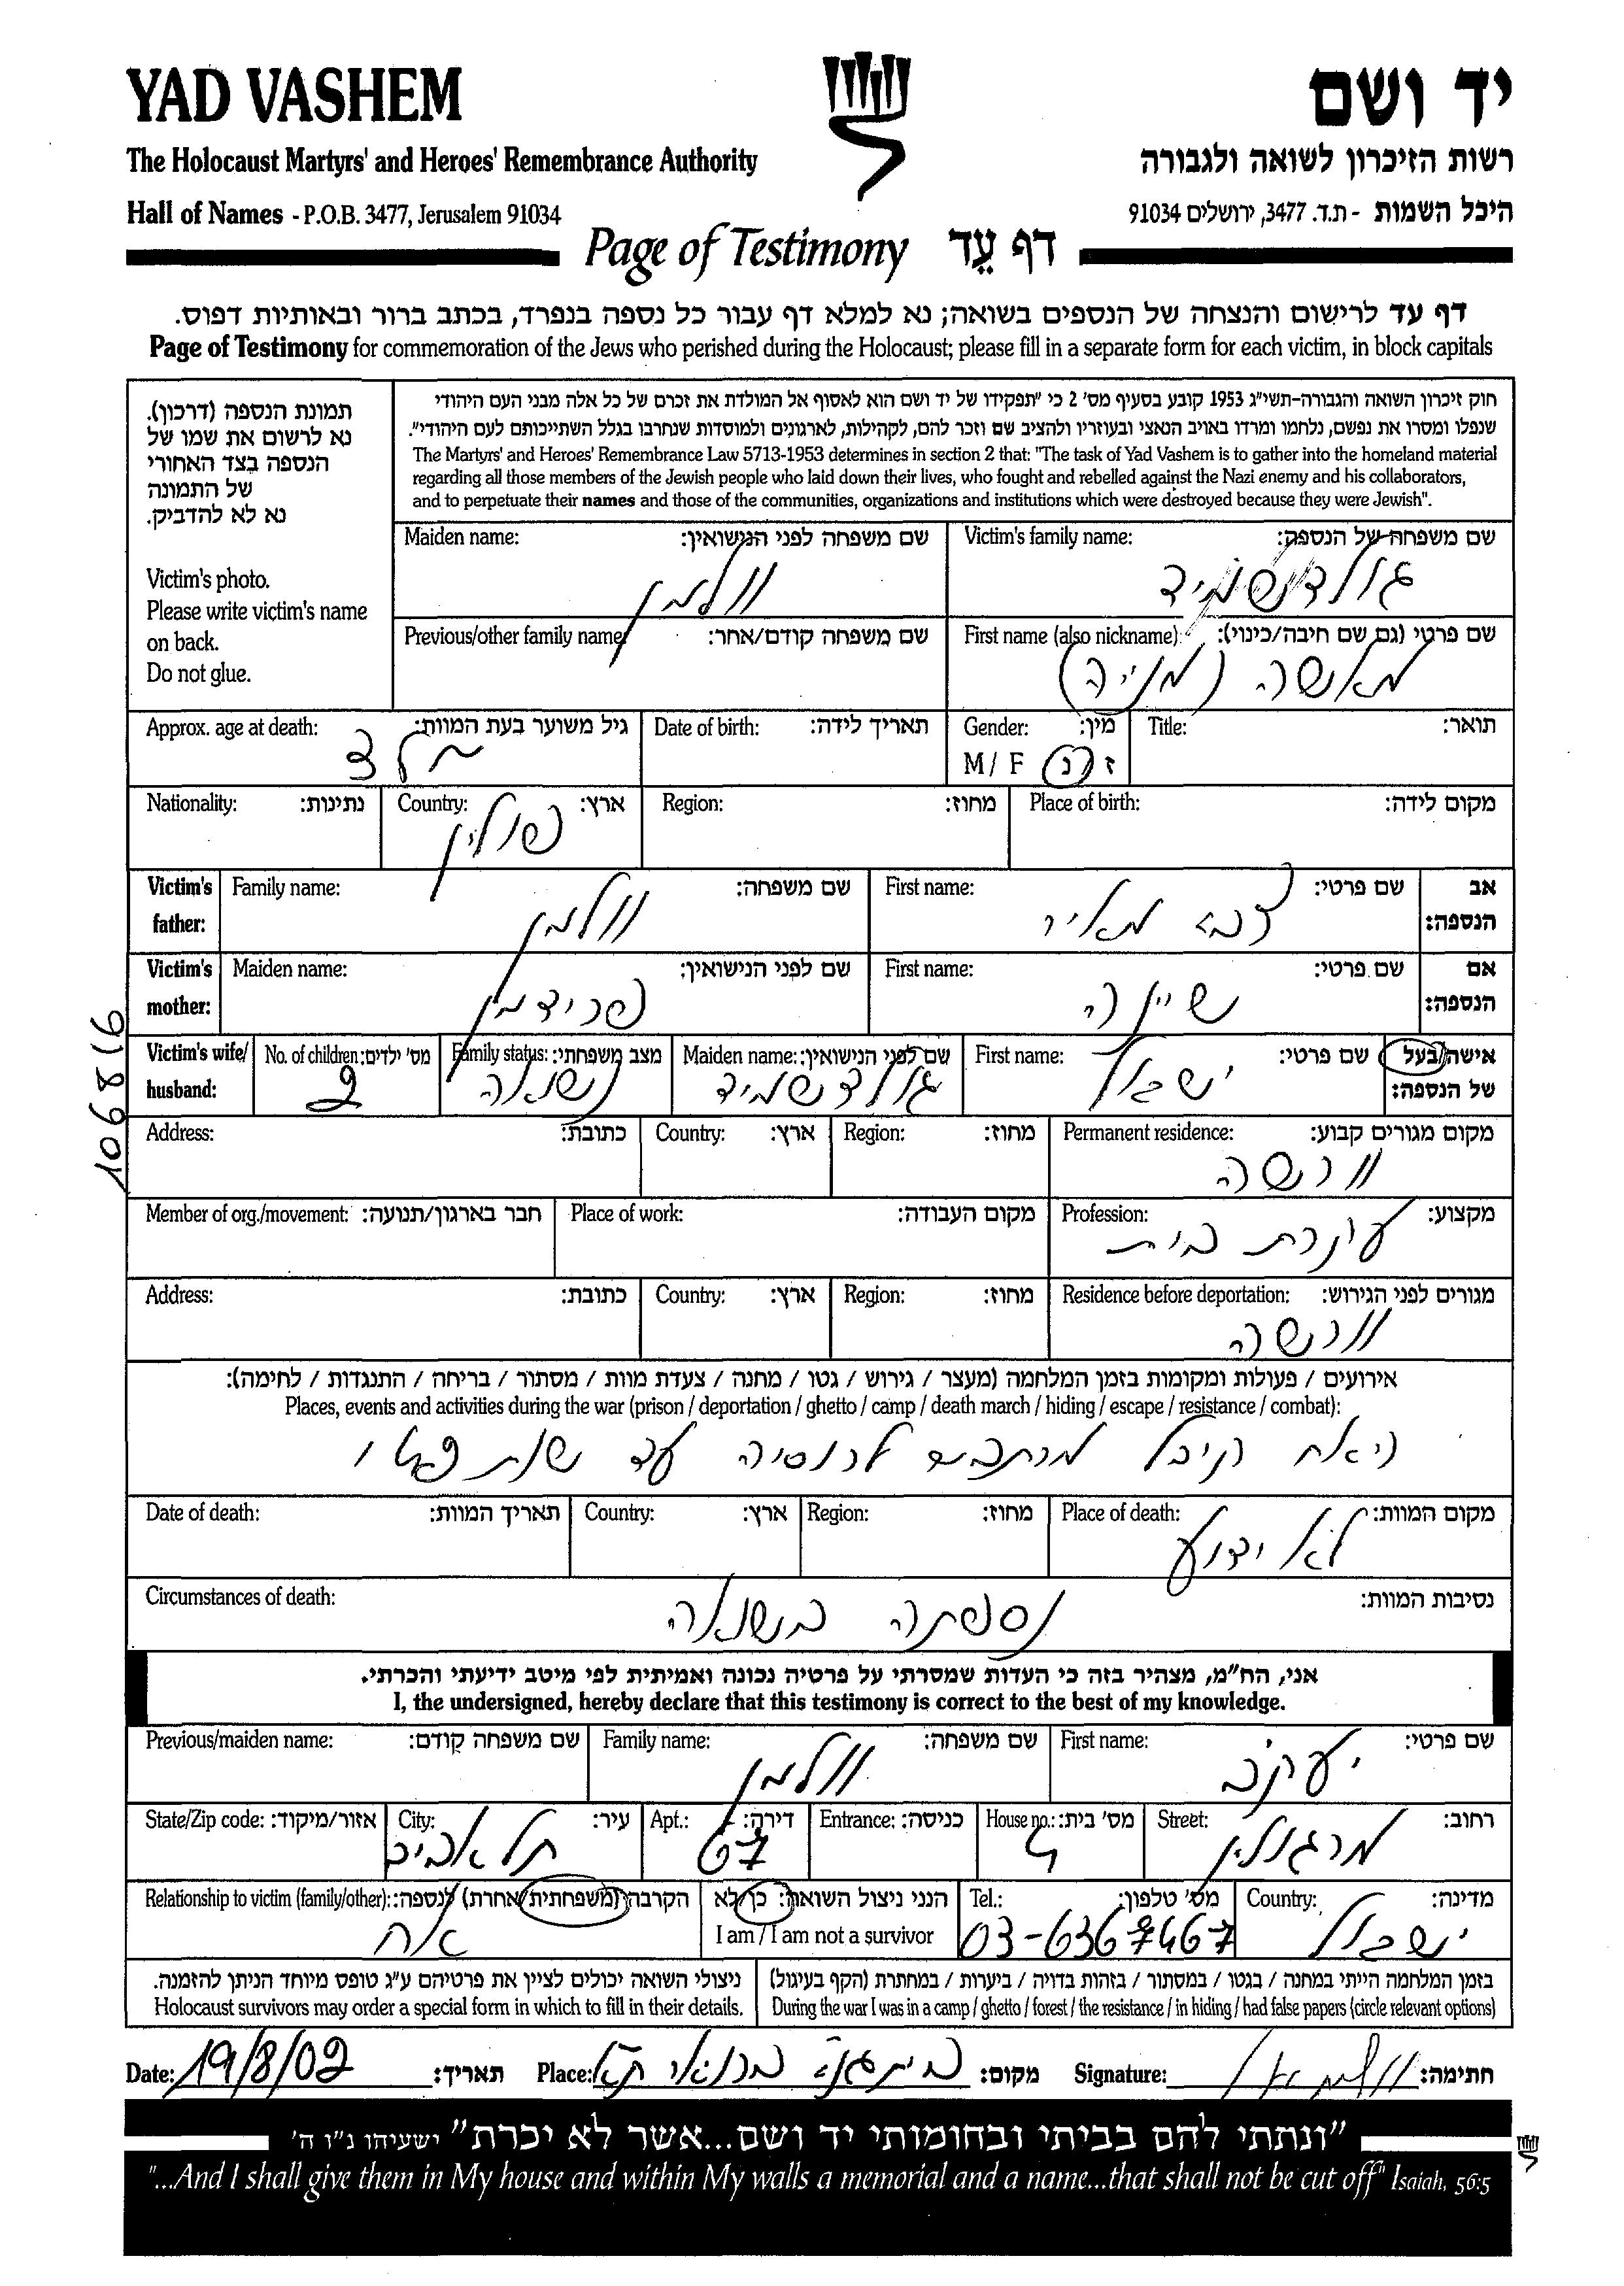 YAD VASHEM
יד ושם
The Holocaust Martyrs' and Heroes' Remembrance Authority
רשות הזיכרון לשואה ולגבורה
Hall of Names - P.O.B. 3477, Jerusalem 91034
היכל השמות - ת.ד. 3477, ירושלים 91034
Page of Testimony דף עֵד
דף עד לרישום והנצחה של הנספים בשואה; נא למלא דף עבור כל נספה בנפרד, בכתב ברור ובאותיות דפוס.
Page of Testimony for commemoration of the Jews who perished during the Holocaust; please fill in a separate form for each victim, in block capitals
תמונת הנספה (דרכון).
נא לרשום את שמו של
הנספה בצד האחורי
של התמונה
נא לא להדביק.
Victim's photo.
Please write victim's name
on back.
Do not glue.
חוק זיכרון השואה והגבורה-תשי"ג 1953 קובע בסעיף מס' 2 כי "תפקידו של יד ושם הוא לאסוף אל המולדת את זכרם של כל אלה מבני העם היהודי
שנפלו ומסרו את נפשם, נלחמו ומרדו באויב הנאצי ובעוזריו ולהציב שם וזכר להם, לקהילות, לארגונים ולמוסדות שנחרבו בגלל השתייכותם לעם היהודי".
The Martyrs' and Heroes' Remembrance Law 5713-1953 determines in section 2 that: "The task of Yad Vashem is to gather into the homeland material
regarding all those members of the Jewish people who laid down their lives, who fought and rebelled against the Nazi enemy and his collaborators,
and to perpetuate their names and those of the communities, organizations and institutions which were destroyed because they were Jewish".
Victim's family name: שם משפחה של הנספה:
גולדשמיד
Maiden name: שם משפחה לפני הנישואין:
וולמן
First name (also nickname): שם פרטי (גם שם חיבה/כינוי):
מאשה (מניה)
Previous/other family name: שם משפחה קודם/אחר:
Title: תואר:
Gender: מין:
M / F ז / נ
Date of birth: תאריך לידה:
Approx. age at death: גיל משוער בעת המוות:
Place of birth: מקום לידה:
Region: מחוז:
Country: ארץ:
פולין
Nationality: נתינות:
Victim's father: אב הנספה:
First name: שם פרטי:
מאיר
Family name: שם משפחה:
וולמן
Victim's mother: אם הנספה:
First name: שם פרטי:
שיינה
Maiden name: שם לפני הנישואין:
פרידמן
Victim's wife/ husband: אישה/בעל של הנספה:
First name: שם פרטי:
ישראל
Maiden name: שם לפני הנישואין:
גולדשמיד
Family status: מצב משפחתי:
נשואה
No. of children: מס' ילדים:
2
1068816
Permanent residence: מקום מגורים קבוע:
וורשה
Region: מחוז:
Country: ארץ:
Address: כתובת:
Profession: מקצוע:
עקרת בית
Place of work: מקום העבודה:
Member of org./movement: חבר בארגון/תנועה:
Residence before deportation: מגורים לפני הגירוש:
וורשה
Region: מחוז:
Country: ארץ:
Address: כתובת:
אירועים / פעולות ומקומות בזמן המלחמה (מעצר / גירוש / גטו / מחנה / צעדת מוות / מסתור / בריחה / התנגדות / לחימה):
Places, events and activities during the war (prison / deportation / ghetto / camp / death march / hiding / escape / resistance / combat):
האח קיבל מכתבים לרוסיה עד שנת
Place of death: מקום המוות:
לא ידוע
Region: מחוז:
Country: ארץ:
Date of death: תאריך המוות:
Circumstances of death: נסיבות המוות:
נספתה בשואה
אני, הח"מ, מצהיר בזה כי העדות שמסרתי על פרטיה נכונה ואמיתית לפי מיטב ידיעתי והכרתי.
I, the undersigned, hereby declare that this testimony is correct to the best of my knowledge.
First name: שם פרטי:
יעקב
Family name: שם משפחה:
וולמן
Previous/maiden name: שם משפחה קודם:
Street: רחוב:
מרגולין
House no.: מס' בית:
4
Entrance: כניסה:
Apt.: דירה:
67
City: עיר:
תל אביב
State/Zip code: אזור/מיקוד:
Country: מדינה:
ישראל
Tel.: מס' טלפון:
03-6367467
הנני ניצול השואה: כן/לא
I am / I am not a survivor
Relationship to victim (family/other): הקרבה (משפחתית/אחרת) לנספה:
אח
בזמן המלחמה הייתי במחנה / בגטו / במסתור / בזהות בדויה / ביערות / במחתרת (הקף בעיגול)
During the war I was in a camp / ghetto / forest / the resistance / in hiding / had false papers (circle relevant options)
ניצולי השואה יכולים לציין את פרטיהם ע"ג טופס מיוחד הניתן להזמנה.
Holocaust survivors may order a special form in which to fill in their details.
Date: 19/8/02 תאריך:
Place: מקום:
Signature: חתימה:
"ונתתי להם בביתי ובחומותי יד ושם...אשר לא יכרת" ישעיהו נ"ו ה'
"...And I shall give them in My house and within My walls a memorial and a name...that shall not be cut off" Isaiah, 56:5